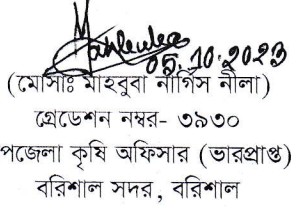 05.10.2023
(মোসাঃ মাহবুবা নার্গিস নীলা)
গ্রেডেশন নম্বর- ৩৯৩০
পজেলা কৃষি অফিসার (ভারপ্রাপ্ত)
বরিশাল সদর, বরিশাল